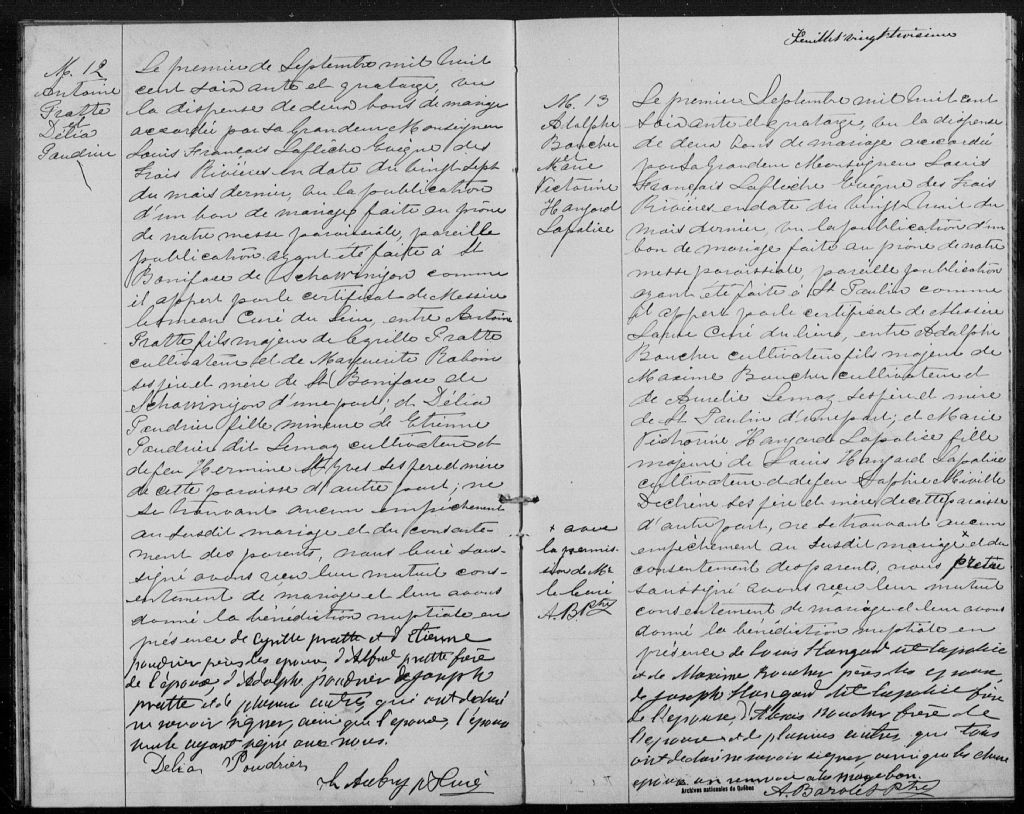 M. 12
Antoine
Pratte
et
Délia
Poudrier
Le premier de Septembre mil huit
cent soixante et quatorze, vu
la dispense de deux bans de mariage
accordée par sa Grandeur Monseigneur
Louis François Laflèche Evêque des
Trois Rivières en date du vingt sept
du mois dernier, vu la publication
d'un ban de mariage faite au prône
de notre messe paroissiale, pareille
publication ayant été faite à St
Boniface de Schawinigan comme
il appert par le certificat de Messire
Curé du lieu, entre Antoine
Pratte fils majeur de Cyrille Pratte
cultivateur et de Marguerite
ses père et mère de St Boniface de
Schawinigan d'une part; et Délia
Poudrier fille mineure de Etienne
Poudrier dit Lemay cultivateur et
de feu Hermine St Yves ses père et mère
de cette paroisse d'autre part; ne
se trouvant aucun empêchement
au susdit mariage et du consente-
ment des parents, nous Curé sous-
signé avons reçu leur mutuel cons-
entement de mariage et leur avons
donné la bénédiction nuptiale en
présence de Cyrille pratte et d'Etienne
poudrier pères des epoux, d'Alfred pratte frère
de l'époux, d'Adolphe poudrier de Joseph
pratte et de plusieurs autres qui ont déclaré
ne savoir signer, ainsi que l'époux, l'épouse
seule ayant signé avec nous.
Delia Poudrier
Aubry ptre Curé
Feuillet vingt troisième
M. 13
Adolphe
Boucher
et
Marie
Victorine
Hangard
Lapalise
Le premier Septembre mil huit cent
soixante et quatorze, vu la dispense
de deux bans de mariage accordée
par sa Grandeur Monseigneur Louis
François Laflèche Evêque des Trois
Rivières en date du vingt huit du
mois dernier, vu la publication d'un
ban de mariage faite au prône de notre
messe paroissiale, pareille publication
ayant été faite à St Paulin comme
il appert par le certificat de Messire
Curé du lieu, entre Adolphe
Boucher cultivateur fils majeur de
Maxime Boucher cultivateur et
de Aurelie Lemay ses père et mère
de St Paulin d'une part; et Marie
Victorine Hangard Lapalise fille
majeure de Louis Hangard Lapalise
cultivateur et de feu Sophie Miville
Dechêne ses père et mère de cette paroisse
d'autre part, ne se trouvant aucun
empêchement au susdit mariage x et du
consentement des parents, nous prêtre
soussigné avons reçu leur mutuel
consentement de mariage et leur avons
donné la bénédiction nuptiale en
présence de Louis Hangard dit Lapalise
et de Maxime Boucher pères des epoux,
de Joseph Hangard dit Lapalise frère
de l'épouse, d'Alexis Boucher frère de
l'epoux et de plusieurs autres qui tous
ont déclaré ne savoir signer, ainsi que les
epoux un renvoi à la marge bon.
A. Ptre
x avec
la permis-
sion de Mr
le Curé
A.B. Ptre
Archives nationales du Québec